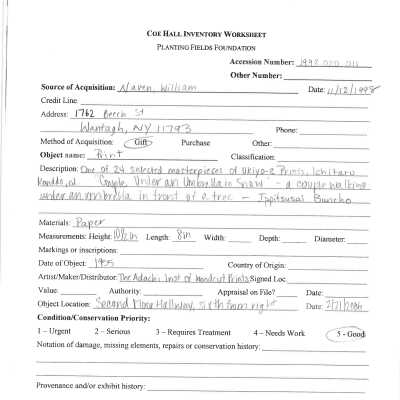 COE HALL INVENTORY WORKSHEET
PLANTING FIELDS FOUNDATION
Accession Number: 1998.020.011
Other Number:
Source of Acquisition: Naven, William Date: 11/12/1998
Credit Line:
Address: 1762 Beech St
Wantagh, NY 11793 Phone:
Method of Acquisition: Gift Purchase Other:
Object name: Print Classification:
Description: One of 24 selected masterpieces of Ukiyo-e Prints, Ichitaro
Kondo, ed "Couple Under an Umbrella in Snow" - a couple walking
under an umbrella in front of a tree - Ippitsusai Buncho
Materials: Paper
Measurements: Height: 10 1/2 in Length: 8in Width: Depth: Diameter:
Markings or inscriptions:
Date of Object: 1955 Country of Origin:
Artist/Maker/Distributor: The Adachi Inst of Handcut Prints Signed Loc:
Value: Authority: Appraisal on File? Date:
Object Location: Second Floor Hallway, sixth from right Date: 2/21/2001
Condition/Conservation Priority:
1 – Urgent 2 – Serious 3 – Requires Treatment 4 – Needs Work 5 - Good
Notation of damage, missing elements, repairs or conservation history:
Provenance and/or exhibit history: